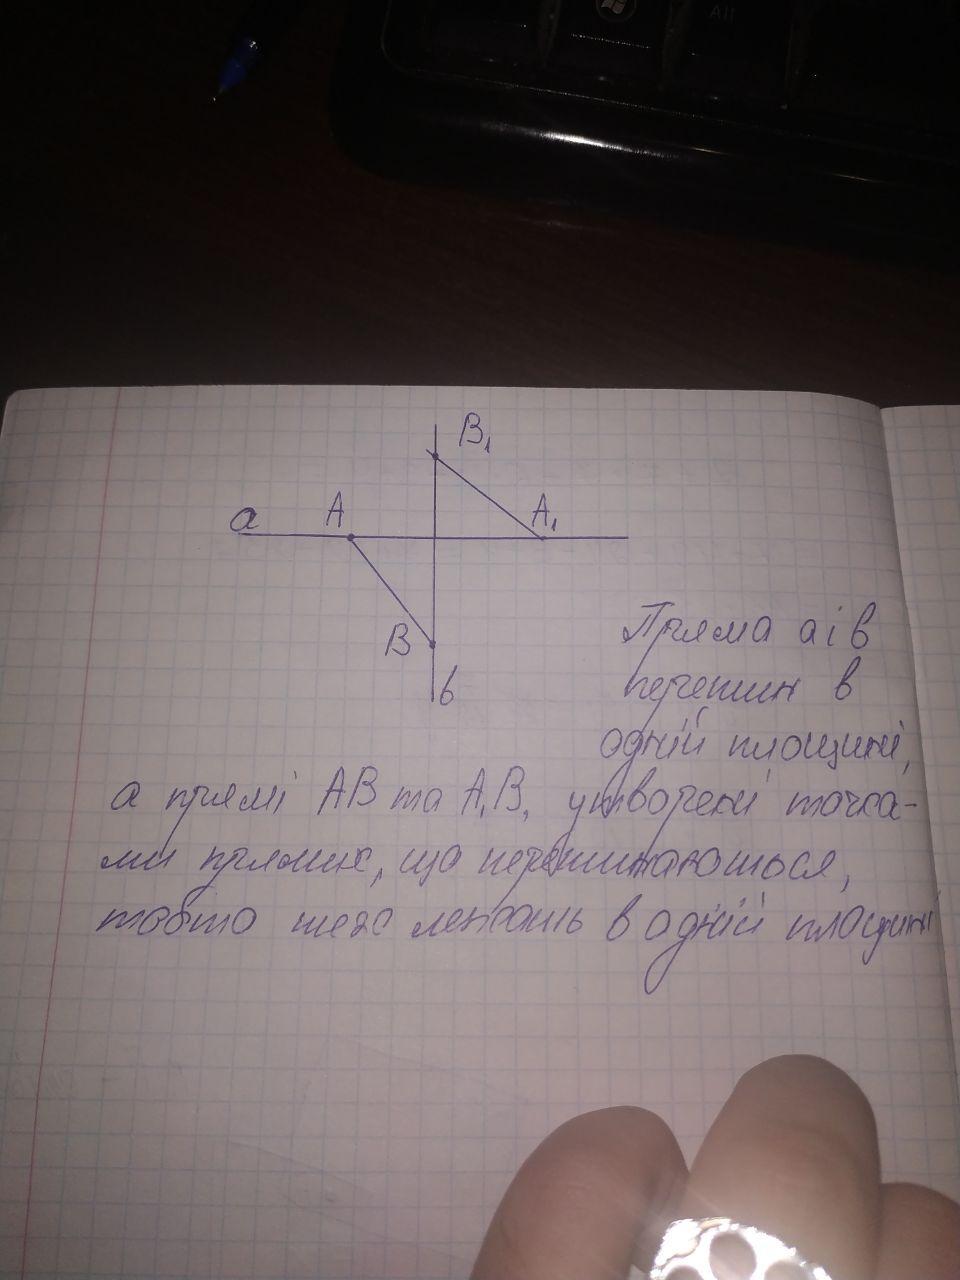 All
B₁
a A A₁
B
в
Пряма а і в
перетин в
одній площині,
а прямі AB та A₁B₁ утворені точка-
ми прямих, що перетинаються,
тобто теж лежать в одній площині